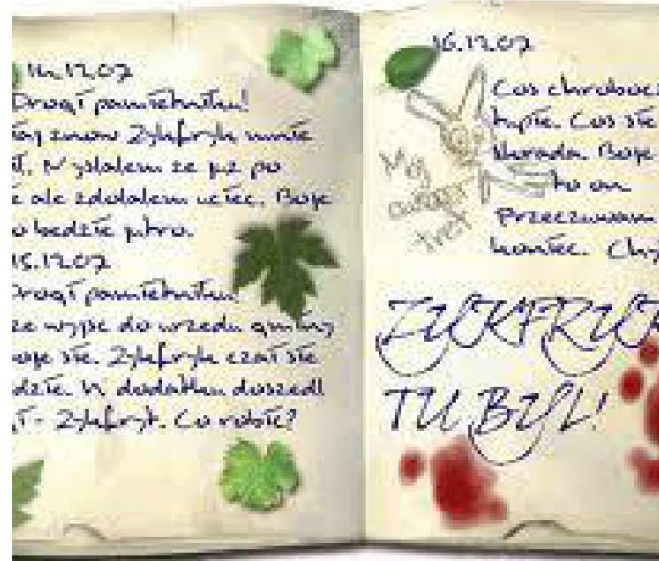 14.12.07
Drogi pamietniku!
znow Zykfryk mnie
ł. Myslalem ze juz po
e ale zdolalem uciec. Boje
o bedzie jutro.
15.12.07
Drogi pamietniku!
ze wyjsc do urzedu gminy
oje sie. Zykfryk czai sie
dzie. W dodatku doszedl
i - Zykfryt. Co robic?
16.12.07
Cos chrobocz
kupie. Cos sie
skrada. Boje
to on
Przeczuwam
koniec. Chy
Moj
autopor
tret
ZYKFRYK
TU BYL!